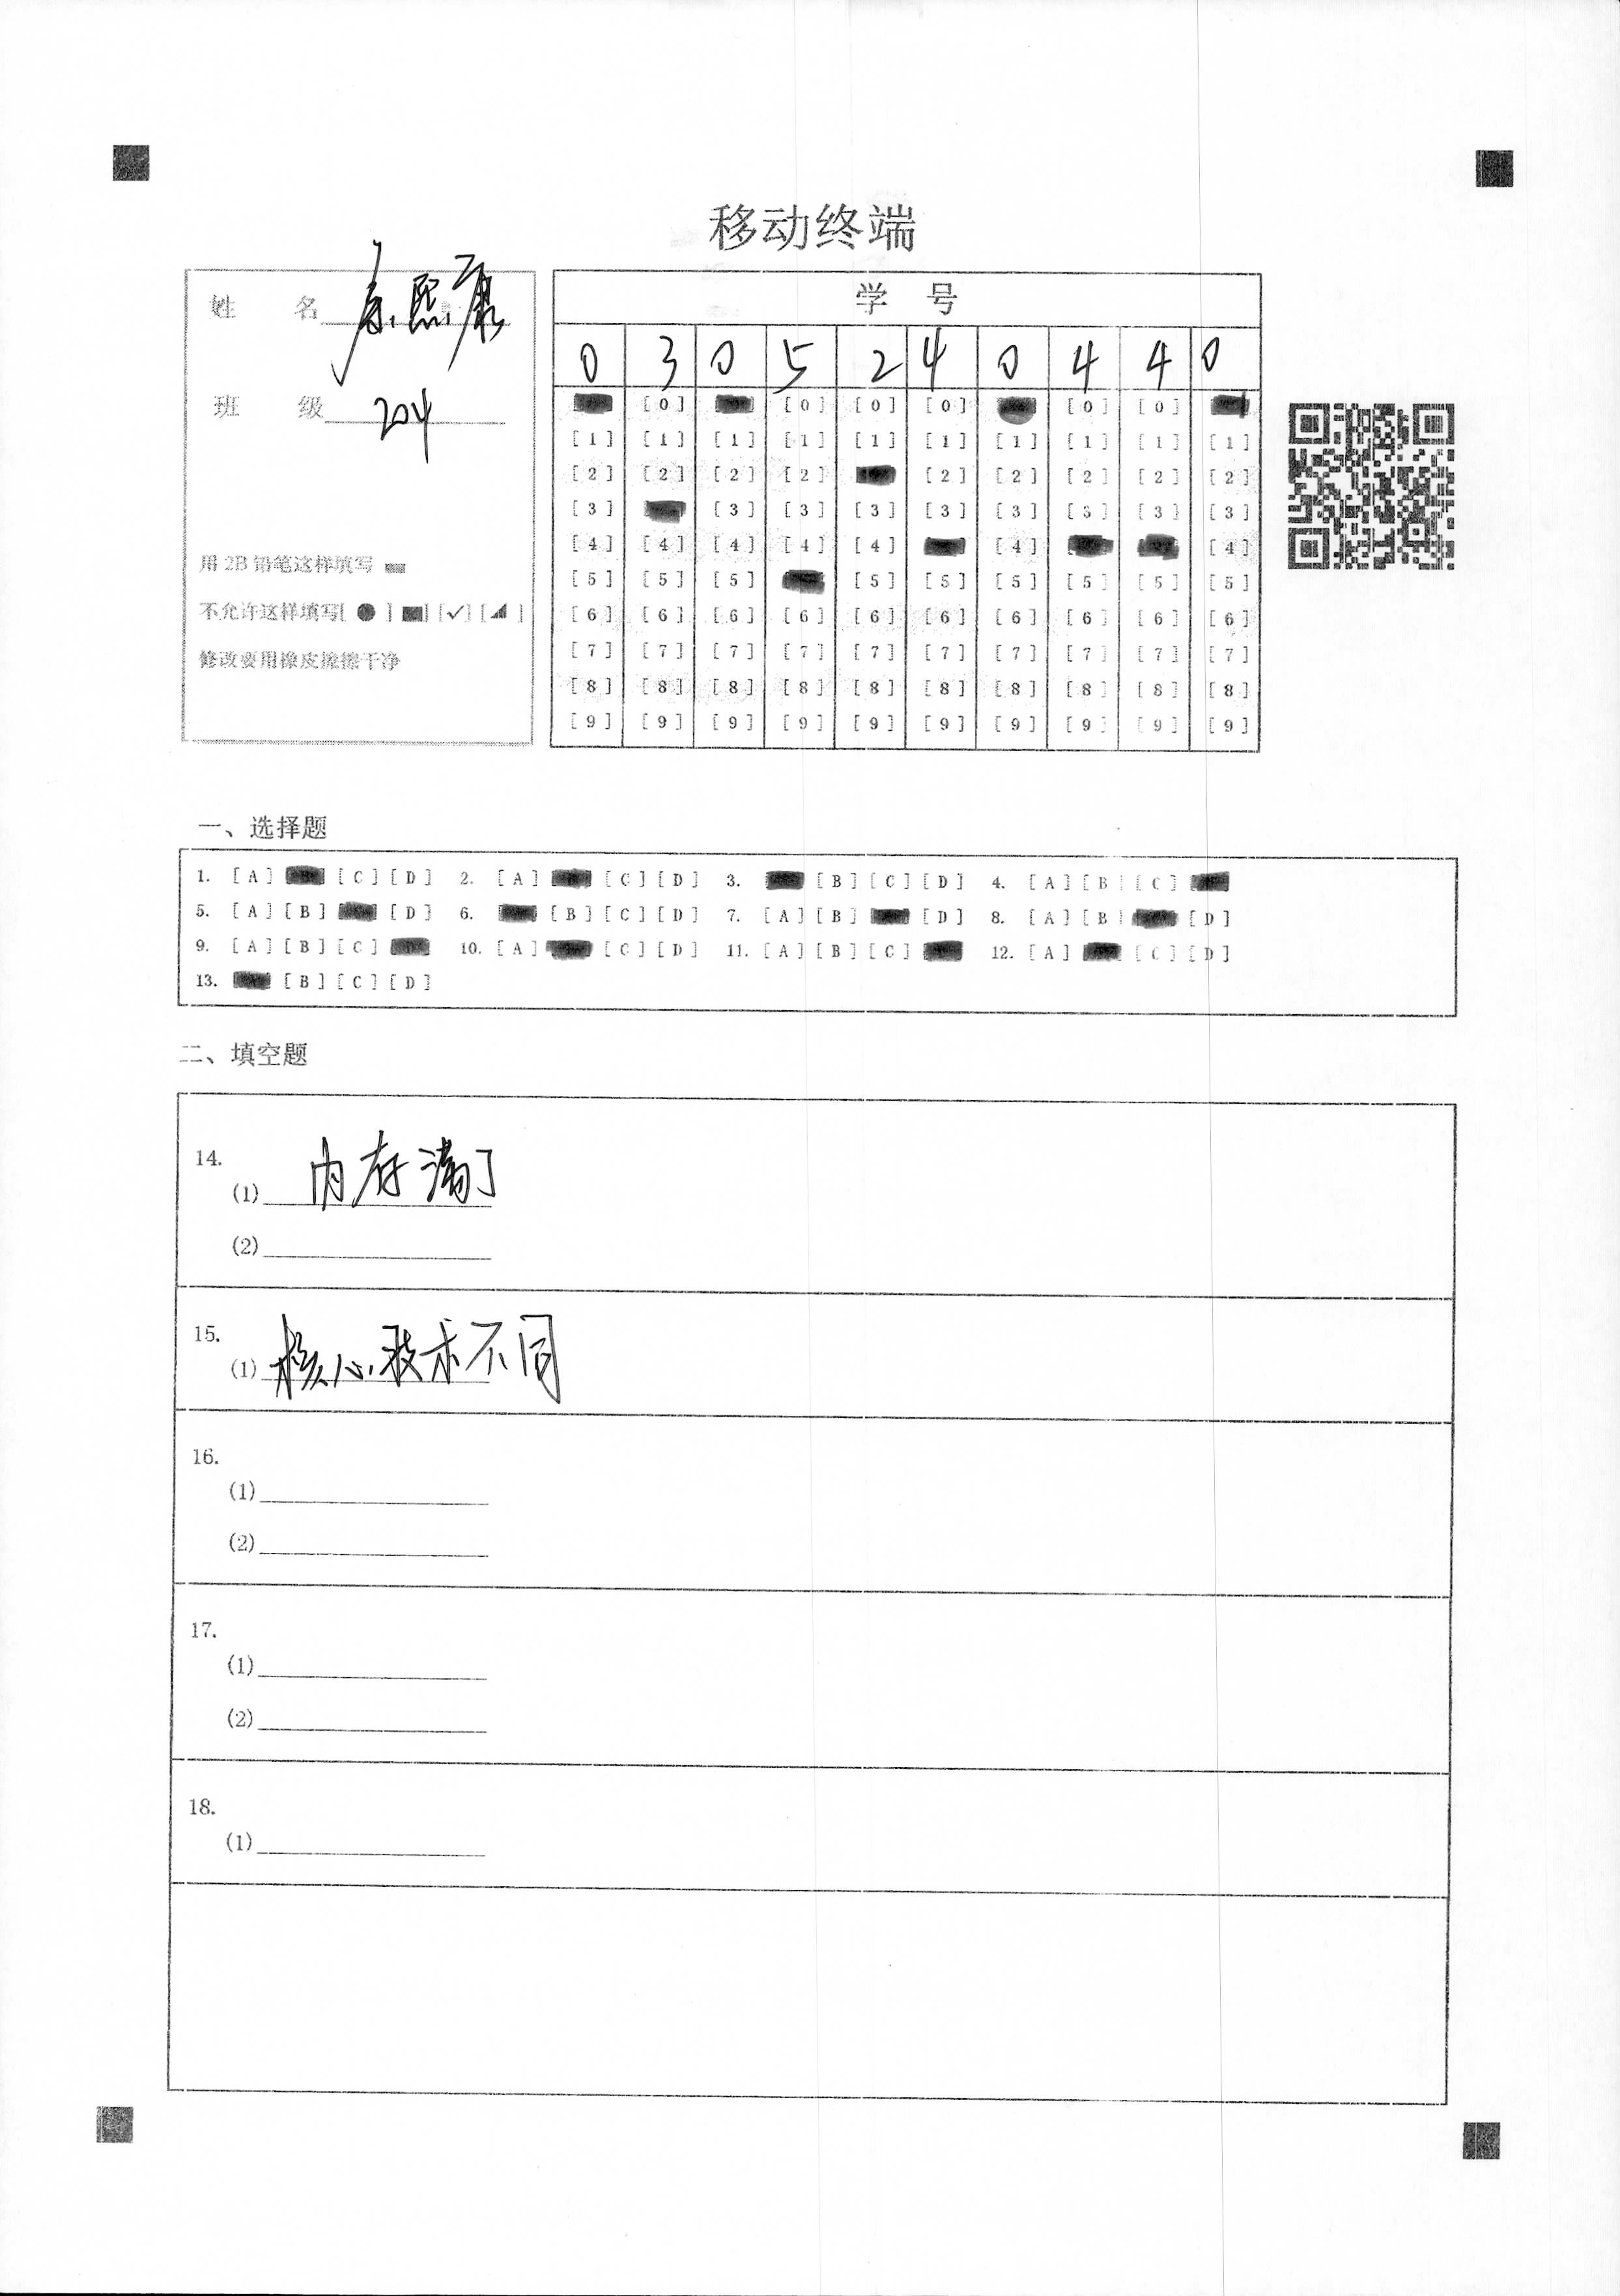 移动终端
姓 名 熙康
班 级 204
用 2B 铅笔这样填写
不允许这样填写[ ● ] [✓] [ ]
修改要用橡皮擦擦干净
学 号
0 3 0 5 2 4 0 4 4 0
[0] [0] [0] [0] [0] [0]
[1] [1] [1] [1] [1] [1] [1] [1] [1] [1]
[2] [2] [2] [2] [2] [2] [2] [2] [2]
[3] [3] [3] [3] [3] [3] [3] [3] [3]
[4] [4] [4] [4] [4] [4] [4]
[5] [5] [5] [5] [5] [5] [5] [5] [5]
[6] [6] [6] [6] [6] [6] [6] [6] [6] [6]
[7] [7] [7] [7] [7] [7] [7] [7] [7] [7]
[8] [8] [8] [8] [8] [8] [8] [8] [8] [8]
[9] [9] [9] [9] [9] [9] [9] [9] [9] [9]
一、选择题
1. [A] [C] [D] 2. [A] [C] [D] 3. [B] [C] [D] 4. [A] [B] [C]
5. [A] [B] [D] 6. [B] [C] [D] 7. [A] [B] [D] 8. [A] [B] [D]
9. [A] [B] [C] 10. [A] [C] [D] 11. [A] [B] [C] 12. [A] [C] [D]
13. [B] [C] [D]
二、填空题
14.
(1) 内存满了
(2)
15.
(1) 核心技术不同
16.
(1)
(2)
17.
(1)
(2)
18.
(1)